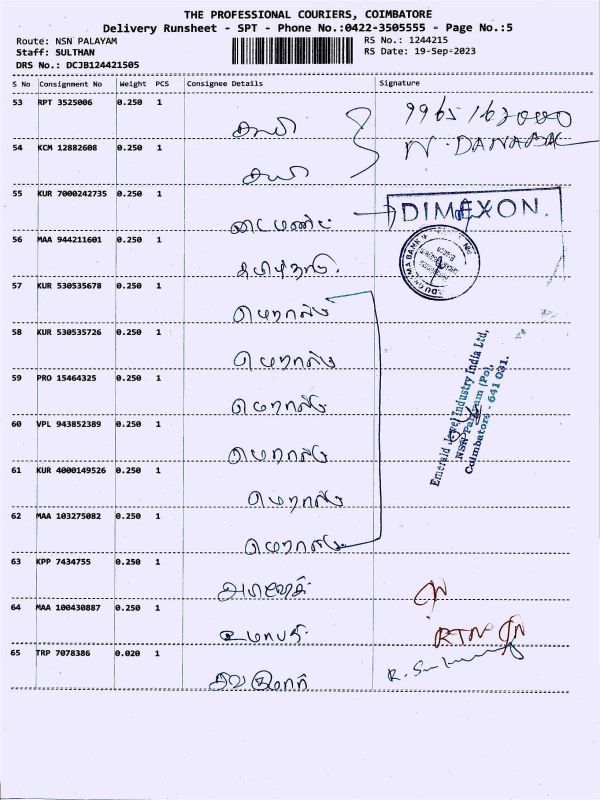 THE PROFESSIONAL COURIERS, COIMBATORE
Delivery Runsheet - SPT - Phone No.:0422-3505555 - Page No.:5
Route: NSN PALAYAM
RS No.: 1244215
Staff: SULTHAN
RS Date: 19-Sep-2023
DRS No.: DCJB124421505
S No Consignment No Weight PCS Consignee Details Signature
53 RPT 3525006 0.250 1
9965162000
N. DANABAL
54 KCM 12882608 0.250 1
55 KUR 7000242735 0.250 1
DIMEXON.
56 MAA 944211601 0.250 1
தமிழ்நாடு.
57 KUR 530535678 0.250 1
எமரால்டு
58 KUR 530535726 0.250 1
எமரால்டு
59 PRO 15464325 0.250 1
எமரால்டு
60 VPL 943852389 0.250 1
எமரால்டு
61 KUR 4000149526 0.250 1
எமரால்டு
62 MAA 103275082 0.250 1
எமரால்டு
Emerald Jewel Industry India Ltd,
NSN Palayam (Po),
Coimbatore - 641 031.
63 KPP 7434755 0.250 1
64 MAA 100430887 0.250 1
உமாபதி
RTN
65 TRP 7078386 0.020 1
சிவகுமார்